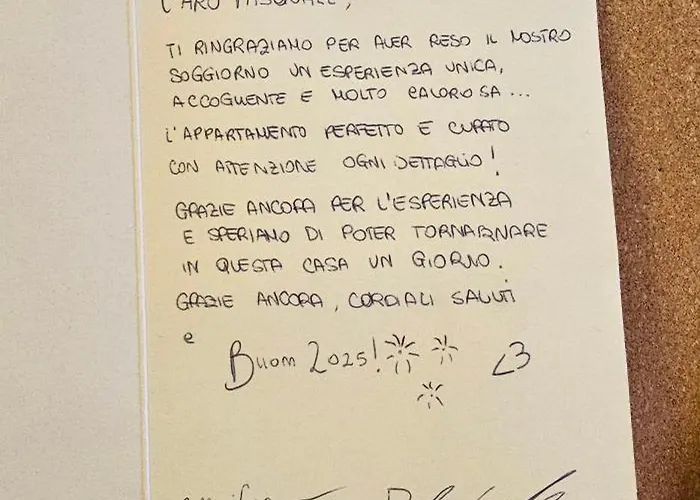 CARO PASQUALE,
TI RINGRAZIAMO PER AVER RESO IL NOSTRO
SOGGIORNO UN ESPERIENZA UNICA,
ACCOGLIENTE E MOLTO CALOROSA...
L'APPARTAMENTO PERFETTO E CURATO
CON ATTENZIONE OGNI DETTAGLIO!
GRAZIE ANCORA PER L'ESPERIENZA
E SPERIAMO DI POTER TORNARNARE
IN QUESTA CASA UN GIORNO.
GRAZIE ANCORA, CORDIALI SALUTI
e
Buon 2025! <3